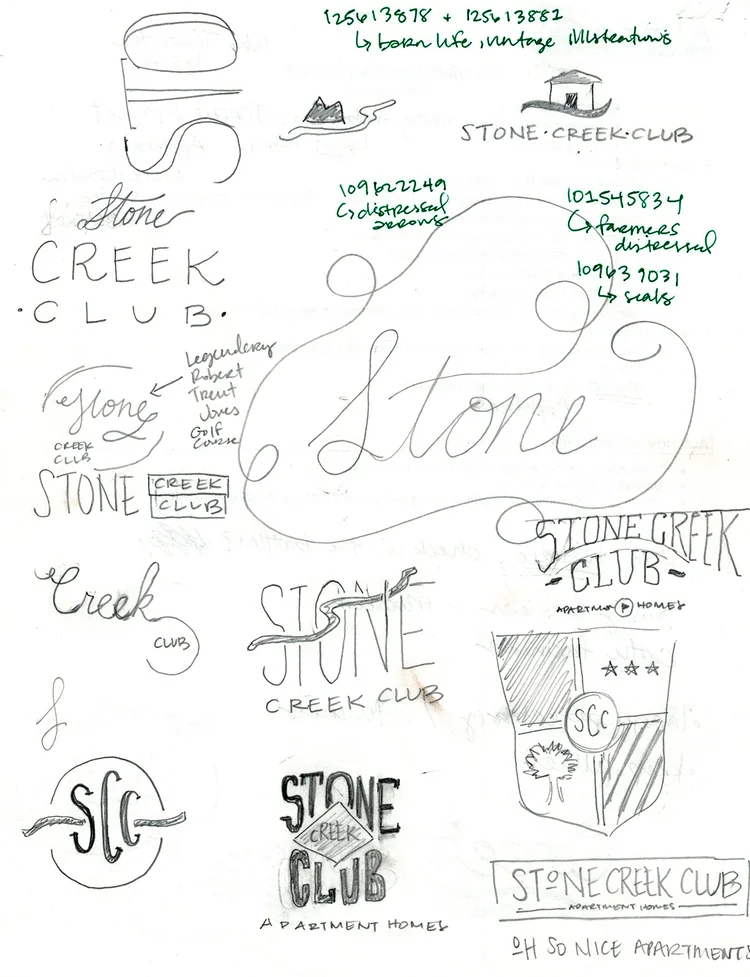 125613878 + 125613882
↳ barn life, vintage illustrations
STO
STONE·CREEK·CLUB
109622249
↳ distressed
arrows
101545834
↳ farmers
distressed
109639031
↳ seals
Stone
CREEK
·CLUB·
Legendary
Robert
Trent
Jones
Golf
Course
Stone
CREEK
CLUB
Stone
STONE CREEK
CLUB
STONE CREEK
-CLUB-
APARTMENT HOMES
Creek
CLUB
STONE
CREEK CLUB
SCC
SCC
STONE
CREEK
CLUB
APARTMENT HOMES
STONE CREEK CLUB
APARTMENT HOMES
OH SO NICE APARTMENTS